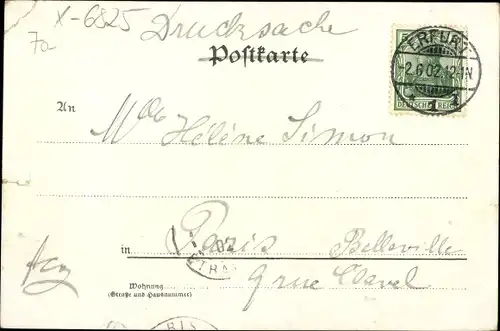 X-6825 Drucksache
70
Postkarte
5
DEUTSCHES REICH
ERFURT
-2.6.02.12-1N
1
An
Mlle Hélène Simon
in Paris Belleville
9 rue Clavel
Wohnung
(Straße und Hausnummer)